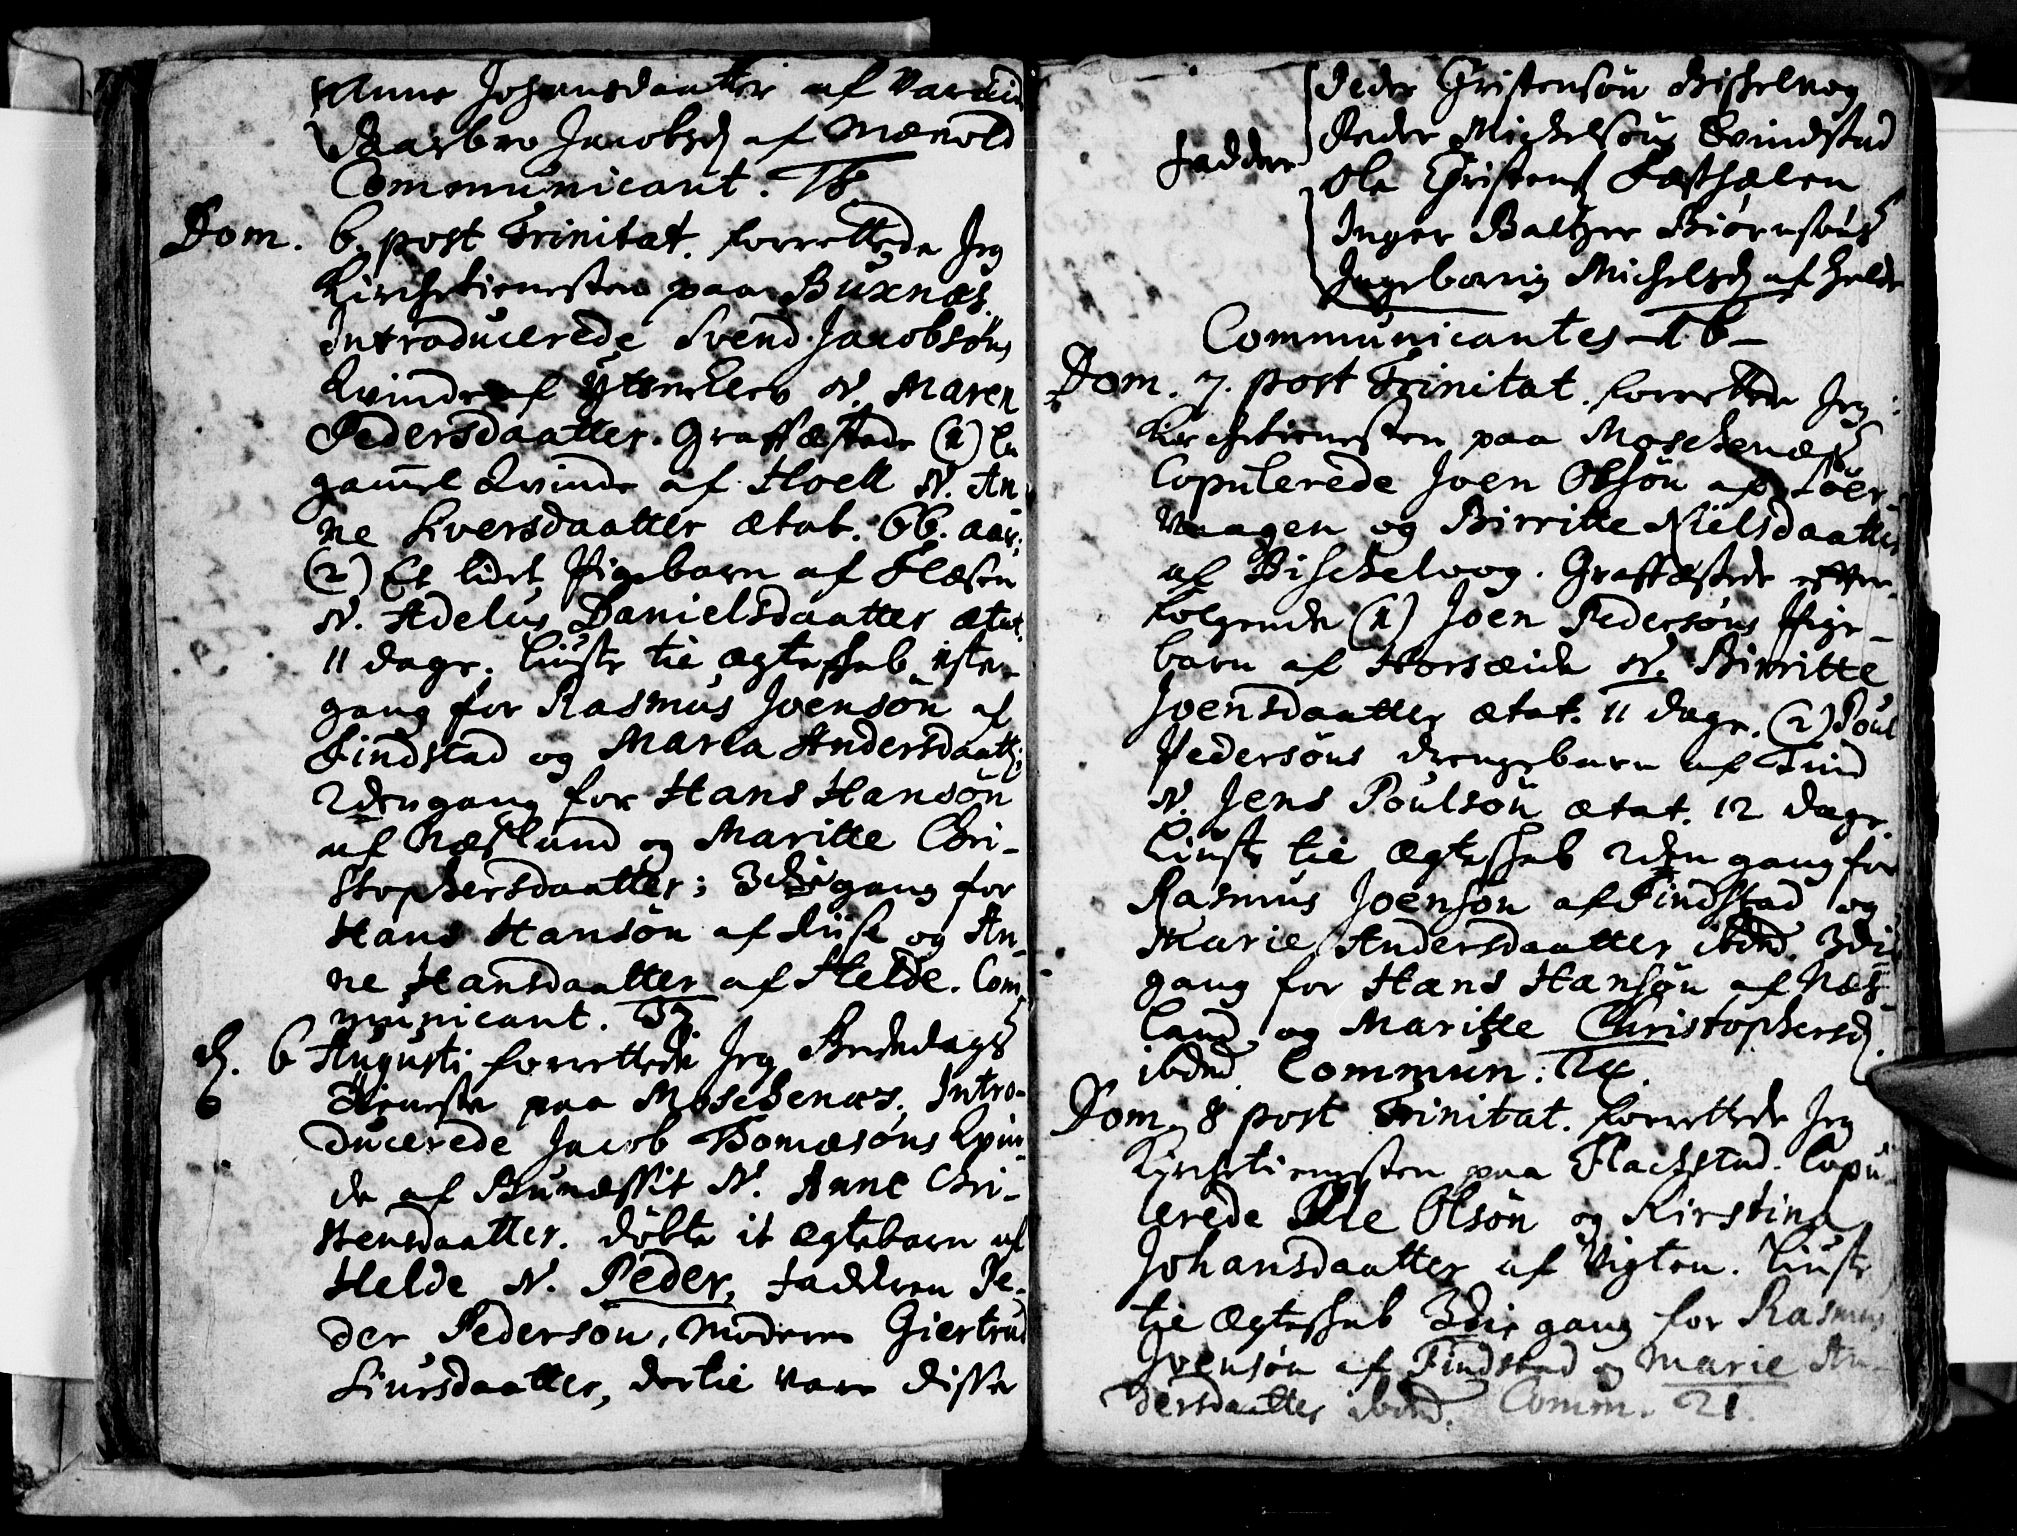 Anne Johansdaatter af
Jacobsd af
Communicant.
Dom. 6. post Trinitat. forrettede Jeg
Kirchetienesten paa Buxnæs.
Introducerede Svend Jacobsøns
Qvinde af N. Maren
Pedersdaatter. Graffæstede (1) En
gamel Qvinde af Hoell N. An
ne Siversdaatter ætat. 66. aar;
(2) Et lidet Pigebarn af Flæsen
N. Adelus Danielsdaatter ætat.
11 dage. Liuste tie Ægteskab iste
gang for Rasmus Joensøn af
Findstad og Maria Andersdaatt;
2den gang for Hans Hansøn
af Næsland og Maritte Chri-
stophersdaatter; 3die gang for
Hans Hansøn af og An-
ne Hansdaatter af Helde. Com
municant.
d. 6 Augusti forrettede Jeg Bededags
Tieneste paa Moschenæs. Intro-
ducerede Jacob Thomæsøns Qvin
de af N. Anne Chri-
stensdaatter. Døbte it Ægtebarn af
Helde N. Peder, Fadderen Pe-
der Pedersøn, Moderen Giertrud
Siursdaatter, dertie vare disse
Peder Christensøn
Fadder Peder Michelsøn Qvindstad
Ole Christens
Inger Baltzer Biørnsøns
Ingeborrig Michelsd af Helde
Communicantes 16
Dom. 7. post Trinitat. forrettede Jeg
Kirchetienesten paa Moschenæs
Copulerede Joen Olsøn af Søer
vaagen og Birritte Nielsdaatter
af Bischelvog. Graffæstede efter
følgende (1) Joen Pedersøns Pige-
barn af Horseide N. Birritte
Joensdaatter ætat. 11 dage. (2) Poul
Pedersøns drengebarn af Tind
N. Jens Poulsøn ætat. 12 dage.
Liuste tie Ægteskab 2den gang for
Rasmus Joensøn af Findstad og
Marie Andersdaatter ibdm. 3die
gang for Hans Hansøn af Næs-
land og Maritte Christophersd.
ibdm. Commun. 24.
Dom. 8 post Trinitat. forrettede Jeg
Kirchetienesten paa Flachstad. Copu-
lerede Olle Olsøn og Kirstina
Johansdaatter af Vigten. Liuste
tie Ægteskab 3die gang for Rasmus
Joensøn af Findstad og Marie An-
dersdaatter ibdm. Comm. 21.